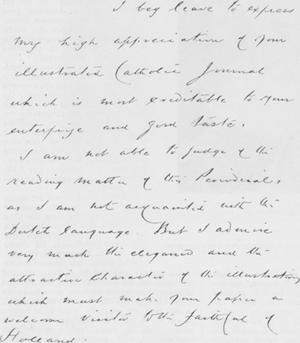 I beg leave to express
my high appreciation of your
illustrated Catholic Journal
which is most creditable to your
enterprize and good taste.
I am not able to judge of the
reading matter of this Periodical,
as I am not acquainted with the
Dutch language. But I admire
very much the elegance and the
attractive character of the illustrations
which must make your paper a
welcome visitor to the faithful of
Holland.